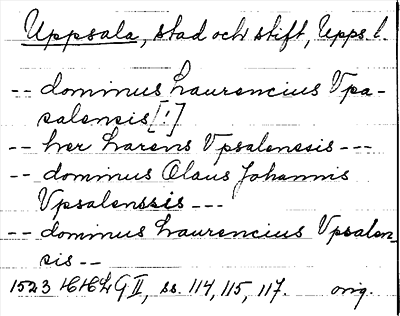 Uppsala, stad och stift, Upps l.
-- dominus Laurencius Vpa-
salensis [!]
-- her Larens Vpsalensis ---
-- dominus Olaus Johannis
Vpsalensis ---
-- dominus Laurencius Vpsalen-
sis --
1523 HH G II, ss. 114, 115, 117. orig.